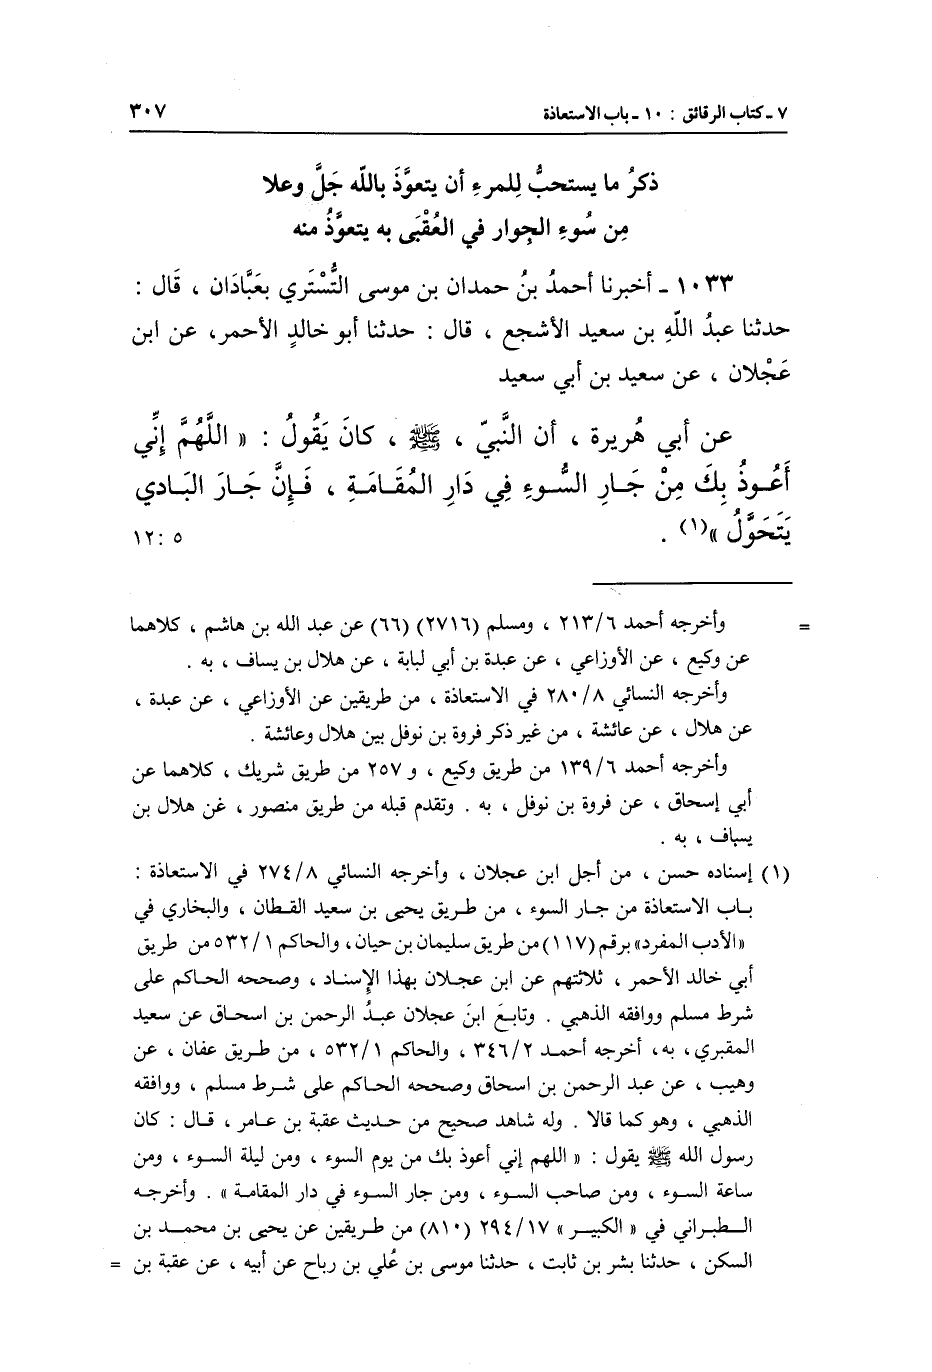 ٧ - كتاب الرقائق : ١٠ - باب الاستعاذة ٣٠٧
ذكرُ ما يستحبُّ لِلمرءِ أن يتعوَّذَ بالله جَلَّ وعلا
مِن سُوءِ الجِوار في العُقْبَى به يتعوَّذُ منه
١٠٣٣ - أخبرنا أحمدُ بنُ حمدان بن موسى التُّسْتَري بعَبَّادَان ، قَال :
حدثنا عبدُ اللّهِ بن سعيد الأشجع ، قال : حدثنا أبو خالدٍ الأحمر، عن ابن
عَجْلان ، عن سعيد بن أبي سعيد
عن أبي هُريرة ، أن النَّبيّ ، ﷺ ، كانَ يَقُولُ : « اللَّهُمَّ إِنِّي
أَعُوذُ بِكَ مِنْ جَارِ السُّوءِ فِي دَارِ المُقَامَةِ ، فَإِنَّ جَارَ البَادي
يَتَحَوَّلُ »(١) . ٥ : ١٢
= وأخرجه أحمد ٢١٣/٦ ، ومسلم (٢٧١٦) (٦٦) عن عبد الله بن هاشم ، كلاهما
عن وكيع ، عن الأوزاعي ، عن عبدة بن أبي لبابة ، عن هلال بن يساف ، به .
وأخرجه النسائي ٢٨٠/٨ في الاستعاذة ، من طريقين عن الأوزاعي ، عن عبدة ،
عن هلال ، عن عائشة ، من غير ذكر فروة بن نوفل بين هلال وعائشة .
وأخرجه أحمد ١٣٩/٦ من طريق وكيع ، و ٢٥٧ من طريق شريك ، كلاهما عن
أبي إسحاق ، عن فروة بن نوفل ، به . وتقدم قبله من طريق منصور ، عن هلال بن
يساف ، به .
(١) إسناده حسن ، من أجل ابن عجلان ، وأخرجه النسائي ٢٧٤/٨ في الاستعاذة :
باب الاستعاذة من جار السوء ، من طريق يحيى بن سعيد القطان ، والبخاري في
«الأدب المفرد» برقم (١١٧) من طريق سليمان بن حيان، والحاكم ٥٣٢/١ من طريق
أبي خالد الأحمر ، ثلاثتهم عن ابن عجلان بهذا الإسناد ، وصححه الحاكم على
شرط مسلم ووافقه الذهبي . وتابعَ ابنَ عجلان عبدُ الرحمن بن اسحاق عن سعيد
المقبري، به، أخرجه أحمد ٣٤٦/٢ ، والحاكم ٥٣٢/١ ، من طريق عفان ، عن
وهيب ، عن عبد الرحمن بن اسحاق وصححه الحاكم على شرط مسلم ، ووافقه
الذهبي ، وهو كما قالا . وله شاهد صحيح من حديث عقبة بن عامر ، قال : كان
رسول الله ﷺ يقول : « اللهم إني أعوذ بك من يوم السوء ، ومن ليلة السوء ، ومن
ساعة السوء ، ومن صاحب السوء ، ومن جار السوء في دار المقامة » . وأخرجه
الطبراني في « الكبير » ٢٩٤/١٧ (٨١٠) من طريقين عن يحيى بن محمد بن
السكن ، حدثنا بشر بن ثابت ، حدثنا موسى بن عُلي بن رباح عن أبيه ، عن عقبة بن =